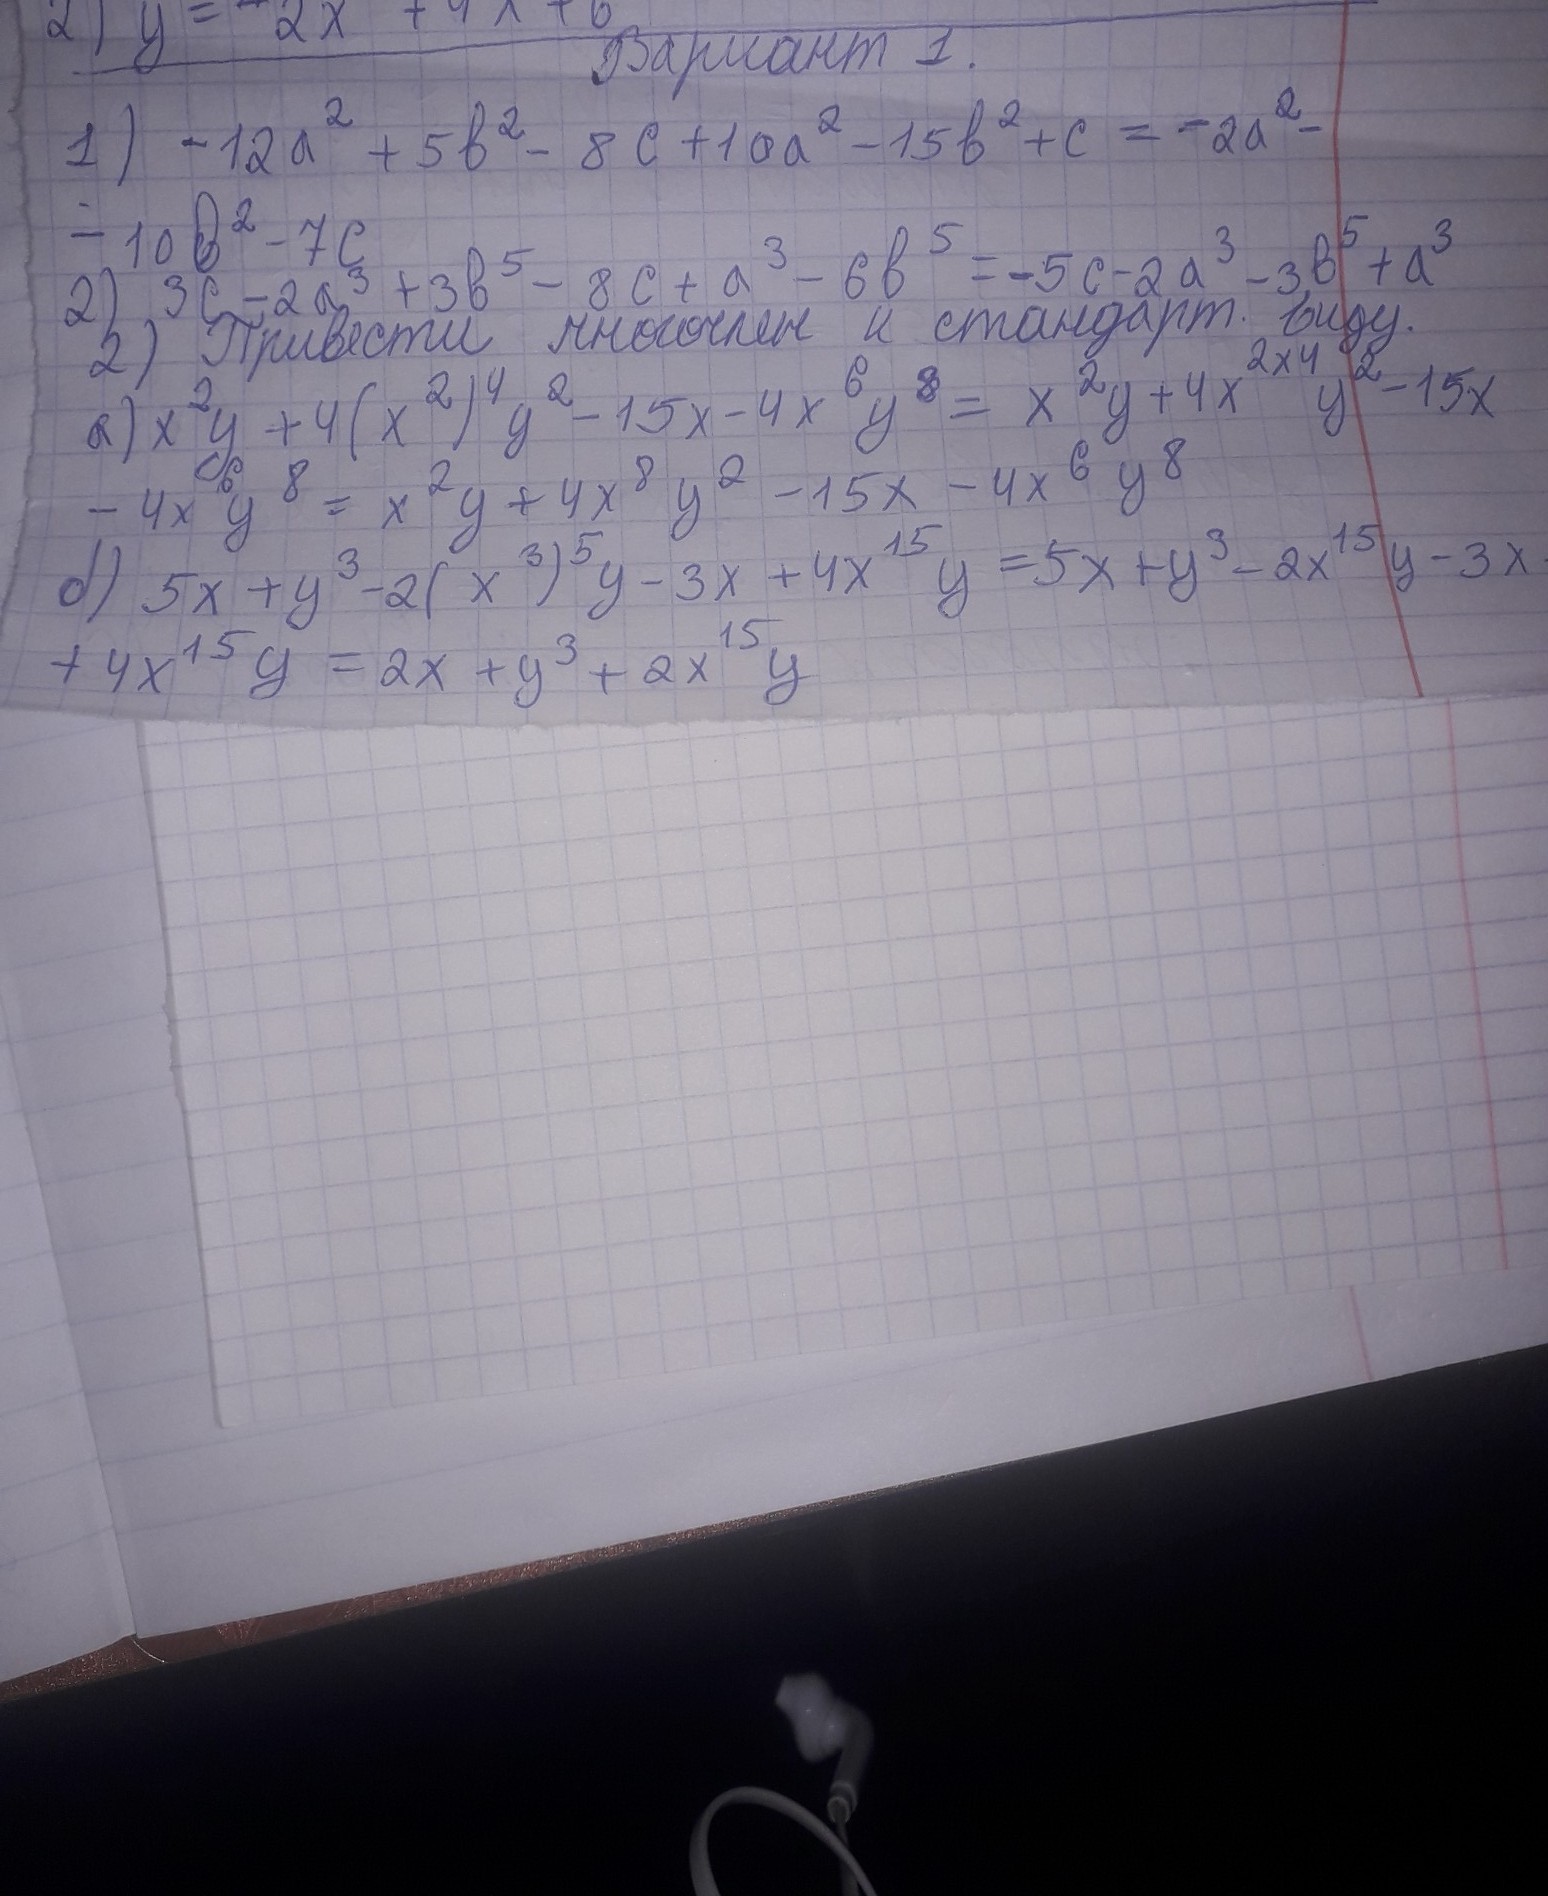 2) y = -2x + 4x + 6
Вариант 1.
1) -12a² + 5b² - 8c + 10a² - 15b² + c = -2a² -
- 10b² - 7c
2) 3c - 2a³ + 3b⁵ - 8c + a³ - 6b⁵ = -5c - 2a³ - 3b⁵ + a³
2) Привести многочлен к стандарт. виду.
а) x²y + 4(x²)⁴y² - 15x - 4x⁶y⁸ = x²y + 4x²ˣ⁴y² - 15x
- 4x⁶y⁸ = x²y + 4x⁸y² - 15x - 4x⁶y⁸
б) 5x + y³ - 2(x³)⁵y - 3x + 4x¹⁵y = 5x + y³ - 2x¹⁵y - 3x
+ 4x¹⁵y = 2x + y³ + 2x¹⁵y